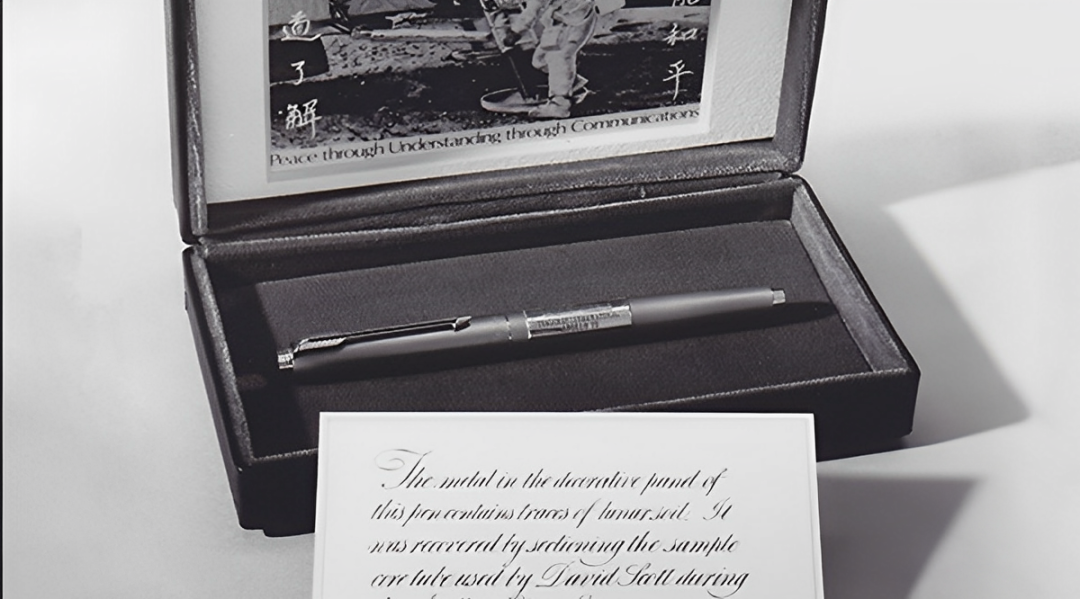 道了解
和平
Peace through Understanding through Communications
The metal in the decorative panel of
this pen contains traces of lunar soil. It
was recovered by sectioning the sample
core tube used by David Scott during